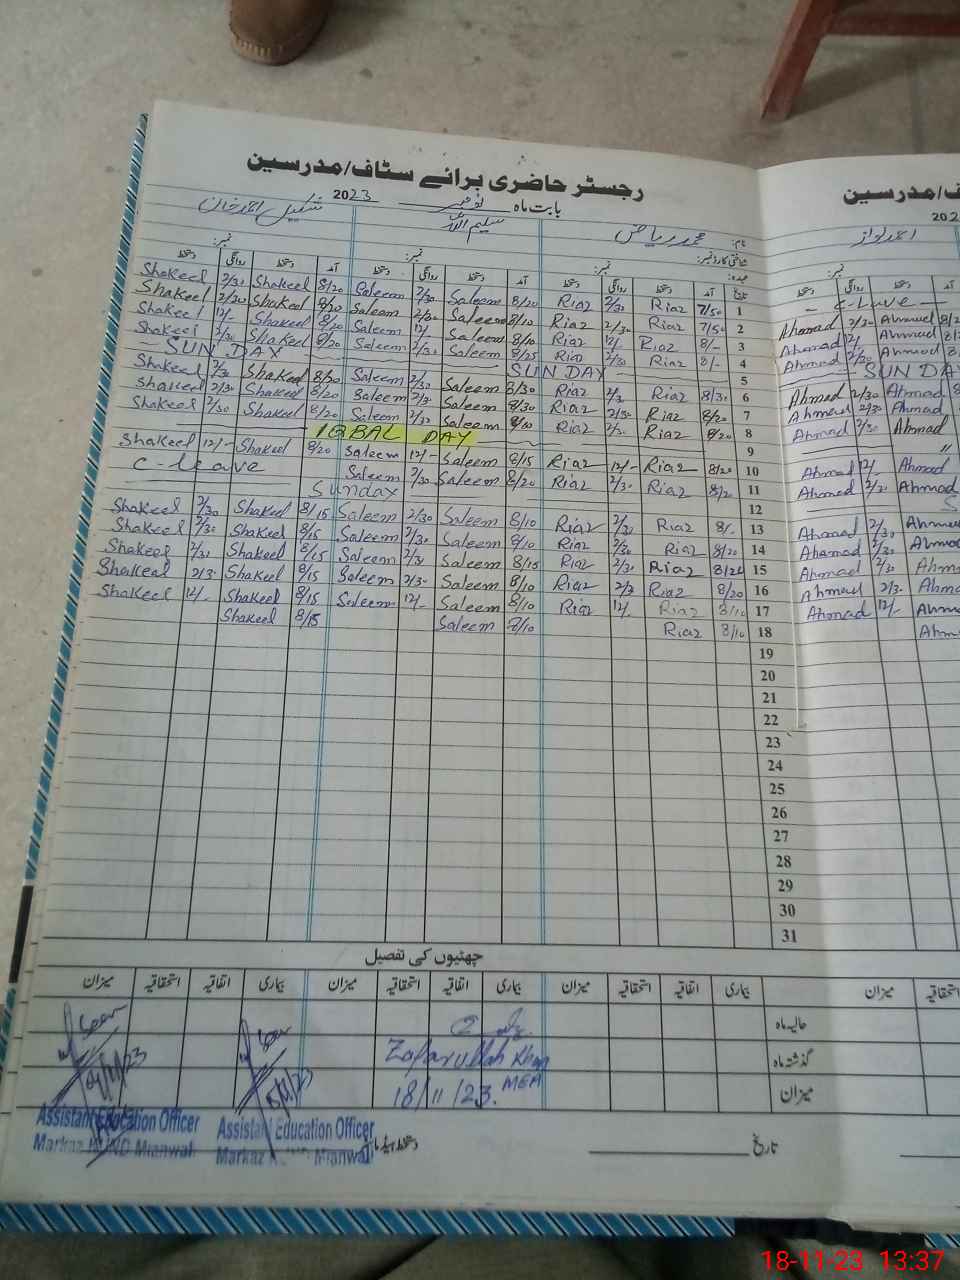 رجسٹر حاضری برائے سٹاف/مدرسین
بابت ماہ نومبر 2023
محمد ریاض سلیم اللہ شکیل احمد خان
Shakeel 2/30 Shakeel 8/20 Saleem 2/30 Saleem 8/20 Riaz 2/30 Riaz 7/50 1
Shakeel 2/30 Shakeel 8/20 Saleem 2/30 Saleem 8/10 Riaz 2/30 Riaz 7/50 2
Shakeel 12/- Shakeel 8/20 Saleem 12/- Saleem 8/10 Riaz 12/- Riaz 8/- 3
Shakeel 2/30 Shakeel 8/20 Saleem 2/30 Saleem 8/25 Riaz 2/30 Riaz 8/- 4
SUN DAY SUN DAY 5
Shakeel 2/30 Shakeel 8/20 Saleem 2/30 Saleem 8/30 Riaz 2/3 Riaz 8/30 6
Shakeel 2/30 Shakeel 8/20 Saleem 2/3 Saleem 8/30 Riaz 2/30 Riaz 8/20 7
Shakeel 2/30 Shakeel 8/20 Saleem 2/30 Saleem Riaz 2/3 Riaz 8/20 8
IQBAL DAY 9
Shakeel 12/- Shakeel 8/20 Saleem 12/- Saleem 8/15 Riaz 12/- Riaz 8/20 10
C-leave Saleem 2/30 Saleem 8/20 Riaz 2/30 Riaz 8/20 11
Sunday 12
Shakeel 2/30 Shakeel 8/15 Saleem 2/30 Saleem 8/10 Riaz 2/30 Riaz 8/- 13
Shakeel 2/30 Shakeel 8/15 Saleem 2/30 Saleem 8/10 Riaz 2/30 Riaz 8/20 14
Shakeel 2/30 Shakeel 8/15 Saleem 2/30 Saleem 8/15 Riaz 2/30 Riaz 15
Shakeel 2/3- Shakeel 8/15 Saleem 2/3- Saleem 8/10 Riaz 2/3 Riaz 8/20 16
Shakeel 12/- Shakeel 8/15 Saleem 12/- Saleem 8/10 Riaz 12/- Riaz 8/10 17
Shakeel 8/15 Saleem 8/10 Riaz 8/10 18
19
20
21
22
23
24
25
26
27
28
29
30
31
چھٹیوں کی تفصیل
بیماری اتفاقیہ استحقاقیہ میزان بیماری اتفاقیہ استحقاقیہ میزان بیماری اتفاقیہ استحقاقیہ میزان
حالیہ ماہ
گذشتہ ماہ
میزان
Seen
Seen
Zafarullah Khan
MEA
18/11/23
Assistant Education Officer
Markaz Mianwali
Assistant Education Officer
Markaz Mianwali
تاریخ
مدرسین
احمد نواز
C-Luve
Ahmad 2/30 Ahmad
Ahmad 12/ Ahmad
Ahmad 2/30 Ahmad
SUN DAY
Ahmad 2/30 Ahmad
Ahmad 2/30 Ahmad
Ahmad 2/30 Ahmad
Ahmad 12/- Ahmad
Ahmad 2/30 Ahmad
Ahmad 2/30
Ahmad 2/30
Ahmad 2/30
Ahmad 2/3-
Ahmad 12/-
میزان
18-11-23 13:37